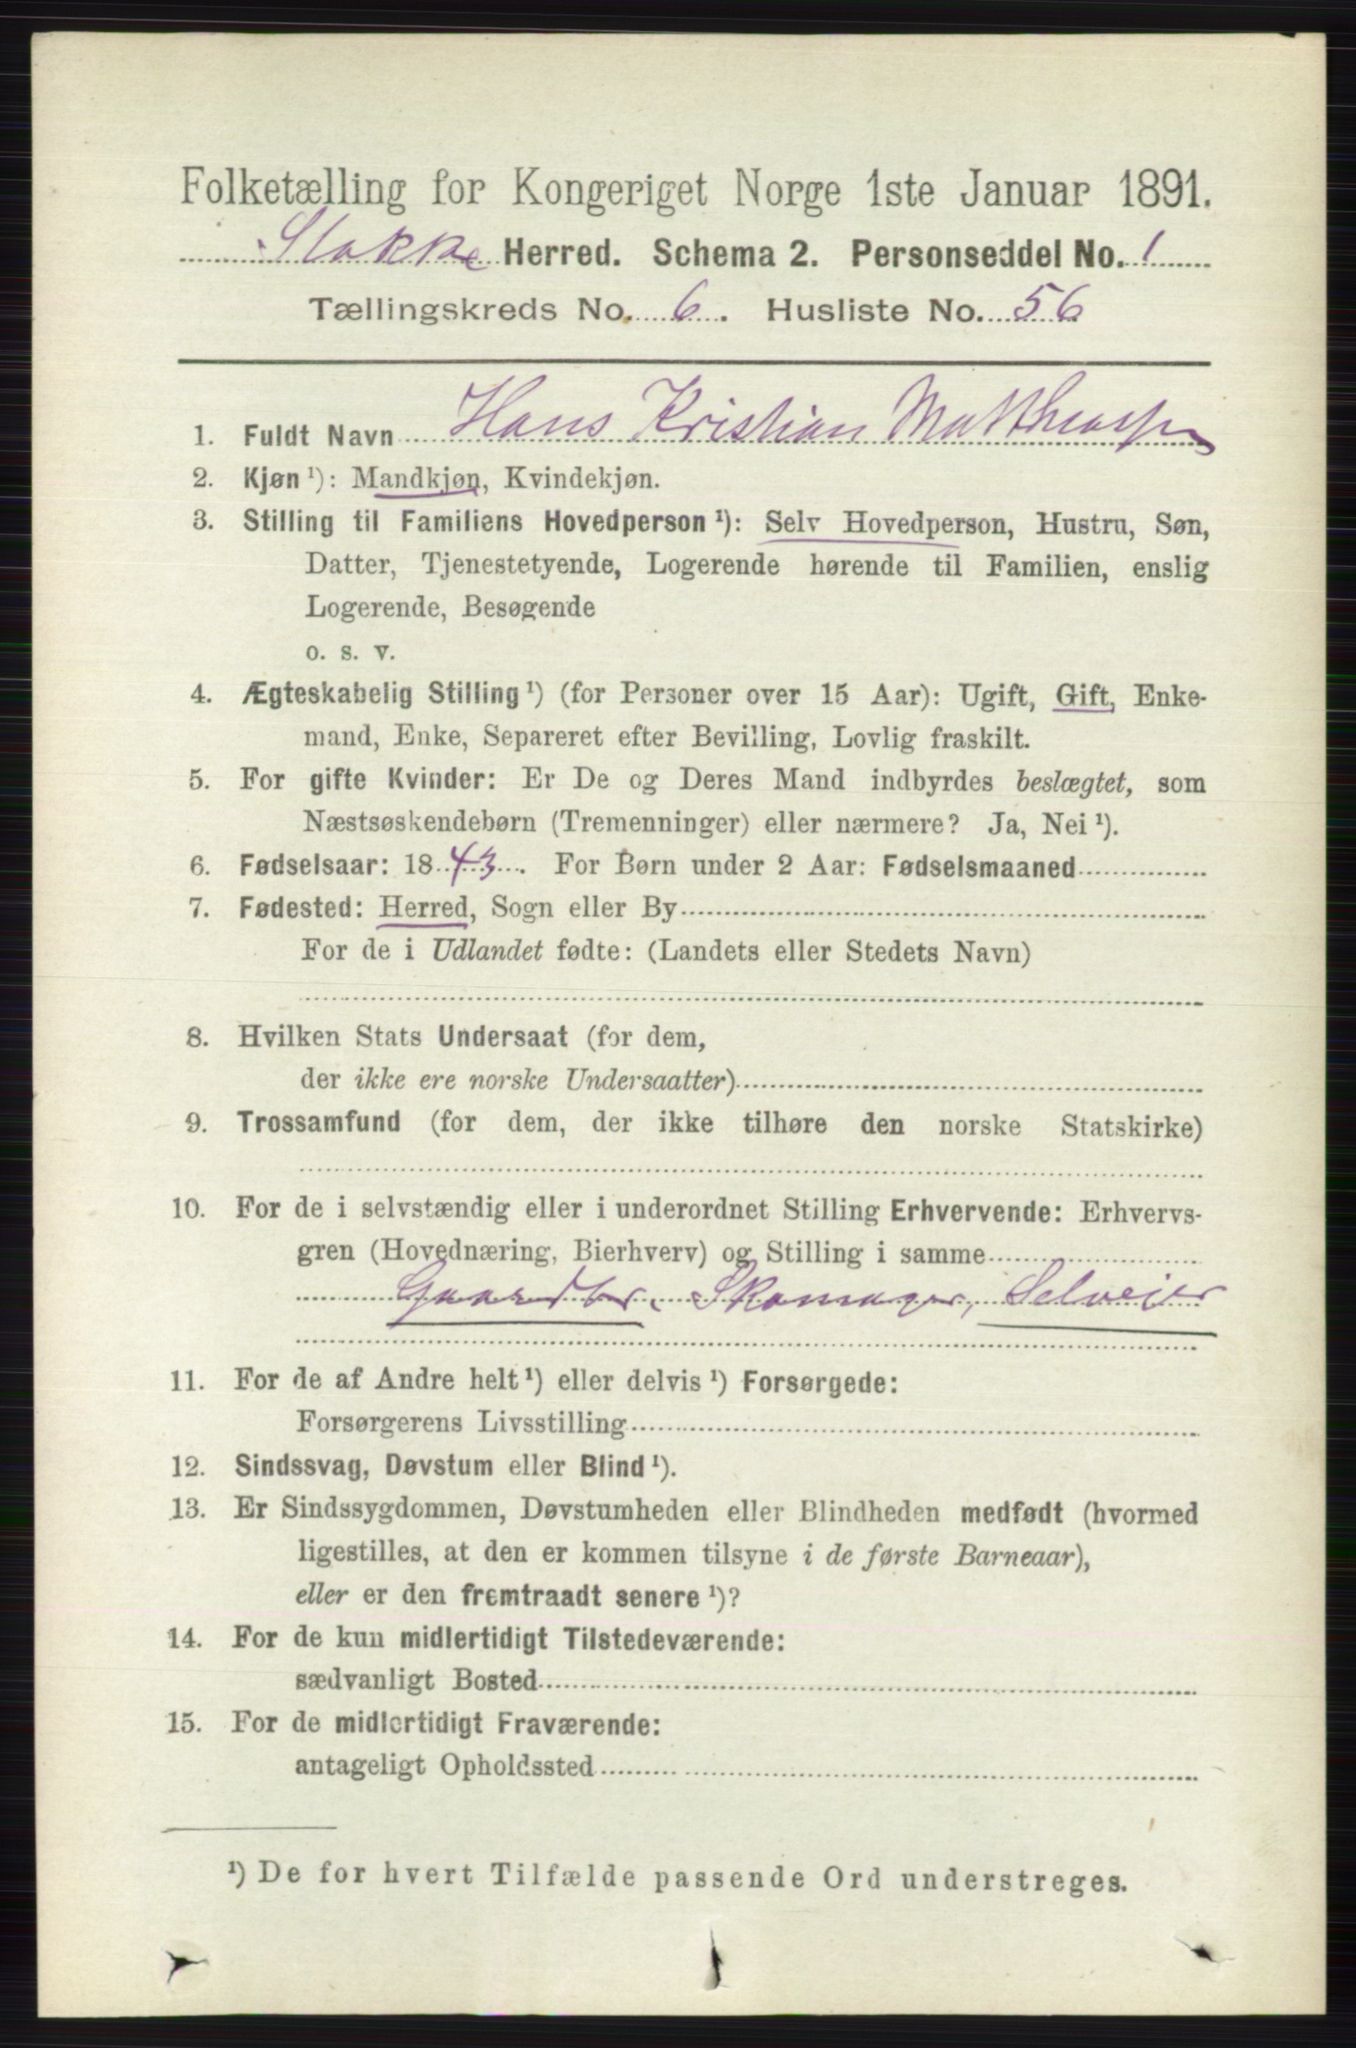 Folketælling for Kongeriget Norge 1ste Januar 1891.
Stokke Herred. Schema 2. Personseddel No. 1
Tællingskreds No. 6. Husliste No. 56
1. Fuldt Navn Hans Kristian Matthias
2. Kjøn ¹): Mandkjøn, Kvindekjøn.
3. Stilling til Familiens Hovedperson ¹): Selv Hovedperson, Hustru, Søn,
Datter, Tjenestetyende, Logerende hørende til Familien, enslig
Logerende, Besøgende
o. s. v.
4. Ægteskabelig Stilling ¹) (for Personer over 15 Aar): Ugift, Gift, Enke-
mand, Enke, Separeret efter Bevilling, Lovlig fraskilt.
5. For gifte Kvinder: Er De og Deres Mand indbyrdes beslægtet, som
Næstsøskendebørn (Tremenninger) eller nærmere? Ja, Nei ¹).
6. Fødselsaar: 1843. For Børn under 2 Aar: Fødselsmaaned
7. Fødested: Herred, Sogn eller By
For de i Udlandet fødte: (Landets eller Stedets Navn)
8. Hvilken Stats Undersaat (for dem,
der ikke ere norske Undersaatter)
9. Trossamfund (for dem, der ikke tilhøre den norske Statskirke)
10. For de i selvstændig eller i underordnet Stilling Erhvervende: Erhvervs-
gren (Hovednæring, Bierhverv) og Stilling i samme
Gaardbr. Skomager, Selveier
11. For de af Andre helt ¹) eller delvis ¹) Forsørgede:
Forsørgerens Livsstilling
12. Sindssvag, Døvstum eller Blind ¹).
13. Er Sindssygdommen, Døvstumheden eller Blindheden medfødt (hvormed
ligestilles, at den er kommen tilsyne i de første Barneaar),
eller er den fremtraadt senere ¹)?
14. For de kun midlertidigt Tilstedeværende:
sædvanligt Bosted
15. For de midlertidigt Fraværende:
antageligt Opholdssted
¹) De for hvert Tilfælde passende Ord understreges.